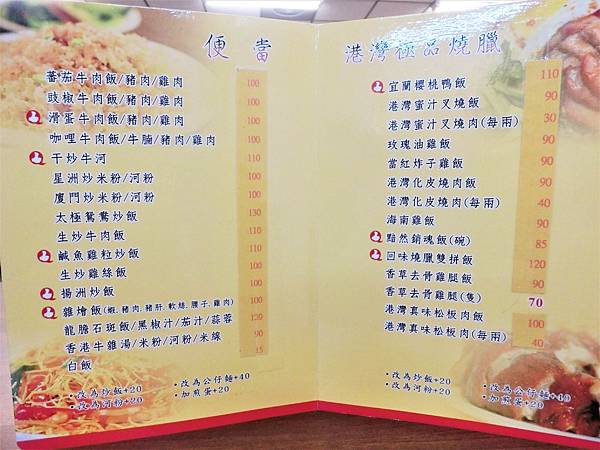 便當
蕃茄牛肉飯/豬肉/雞肉 100
豉椒牛肉飯/豬肉/雞肉 100
滑蛋牛肉飯/豬肉/雞肉 100
咖哩牛肉飯/牛腩/豬肉/雞肉 100
干炒牛河 110
星洲炒米粉/河粉 100
廈門炒米粉/河粉 100
太極鴛鴦炒飯 130
生炒牛肉飯 110
鹹魚雞粒炒飯 110
生炒雞絲飯 100
揚洲炒飯 100
雜燴飯(蝦.豬肉.豬肝.軟絲.腰子.雞肉) 100
龍膽石斑飯/黑椒汁/茄汁/蒜蓉 120
香港牛雜湯/米粉/河粉/米線 90
白飯 15
•改為炒飯+20
•改為公仔麵+40
•改為河粉+20
•加煎蛋+20
港灣極品燒臘
宜蘭櫻桃鴨飯 110
港灣蜜汁叉燒飯 90
港灣蜜汁叉燒肉(每兩) 30
玫瑰油雞飯 90
當紅炸子雞飯 90
港灣化皮燒肉飯 90
港灣化皮燒肉(每兩) 40
海南雞飯 90
黯然銷魂飯(碗) 85
回味燒臘雙拼飯 120
香草去骨雞腿飯 90
香草去骨雞腿(隻) 70
港灣真味松板肉飯 100
港灣真味松板肉(每兩) 40
•改為炒飯+20
•改為公仔麵+40
•改為河粉+20
•加煎蛋+20